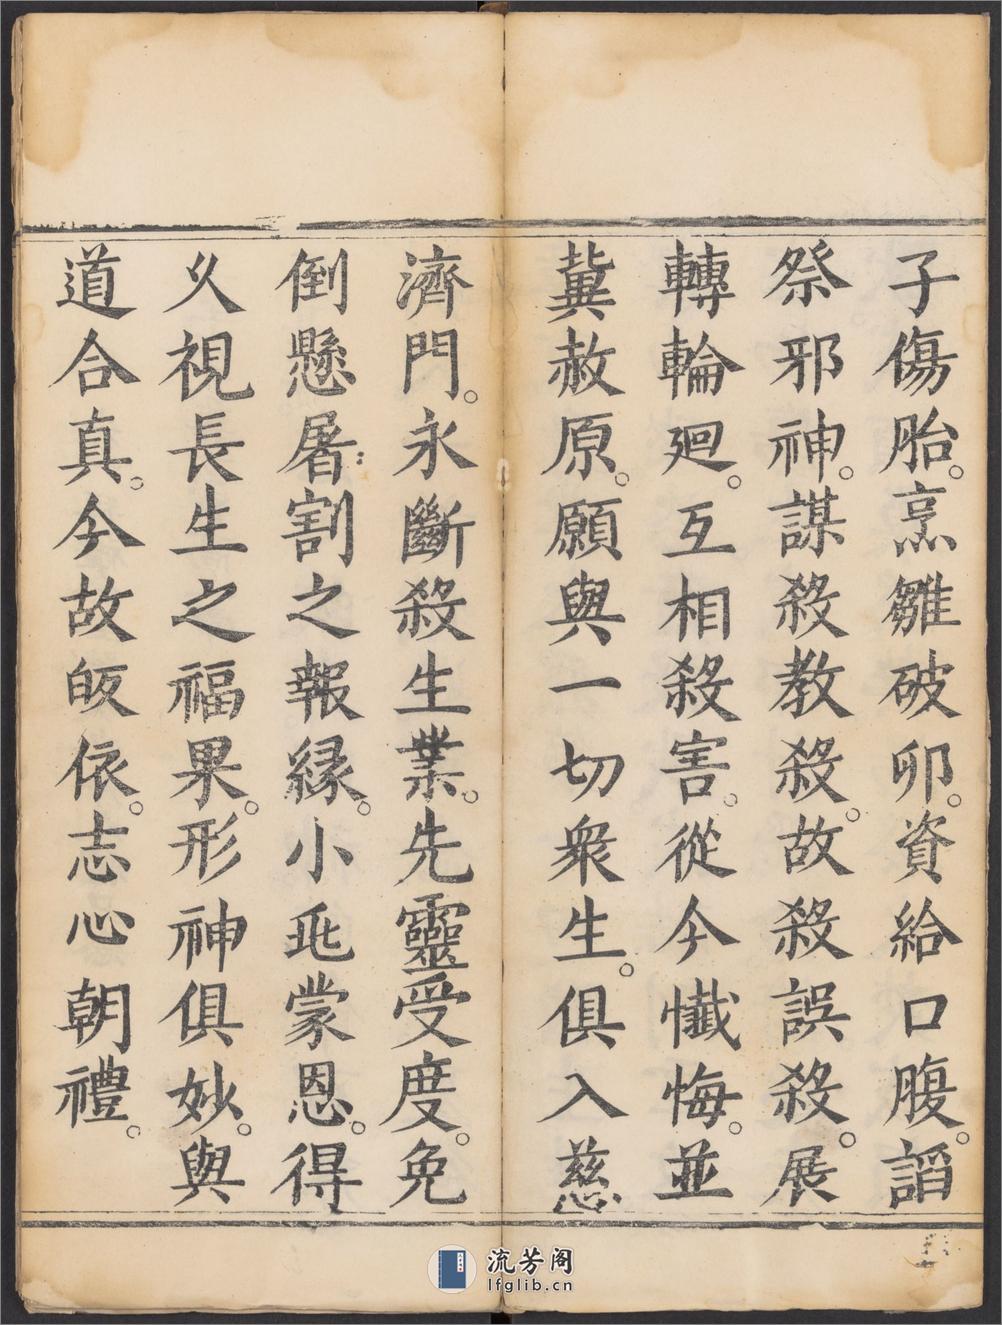 子傷胎。烹雛破卵。資給口腹。謟
祭邪神。謀殺教殺。故殺誤殺。展
轉輪廻。互相殺害。從今懺悔。並
冀赦原。願與一切衆生。俱入慈
濟門。永斷殺生業。先靈受度。免
倒懸屠割之報縁。小丠蒙恩。得
乆視長生之福果。形神俱妙。與
道合真。今故皈依。志心朝禮。
流芳阁
lfglib.cn